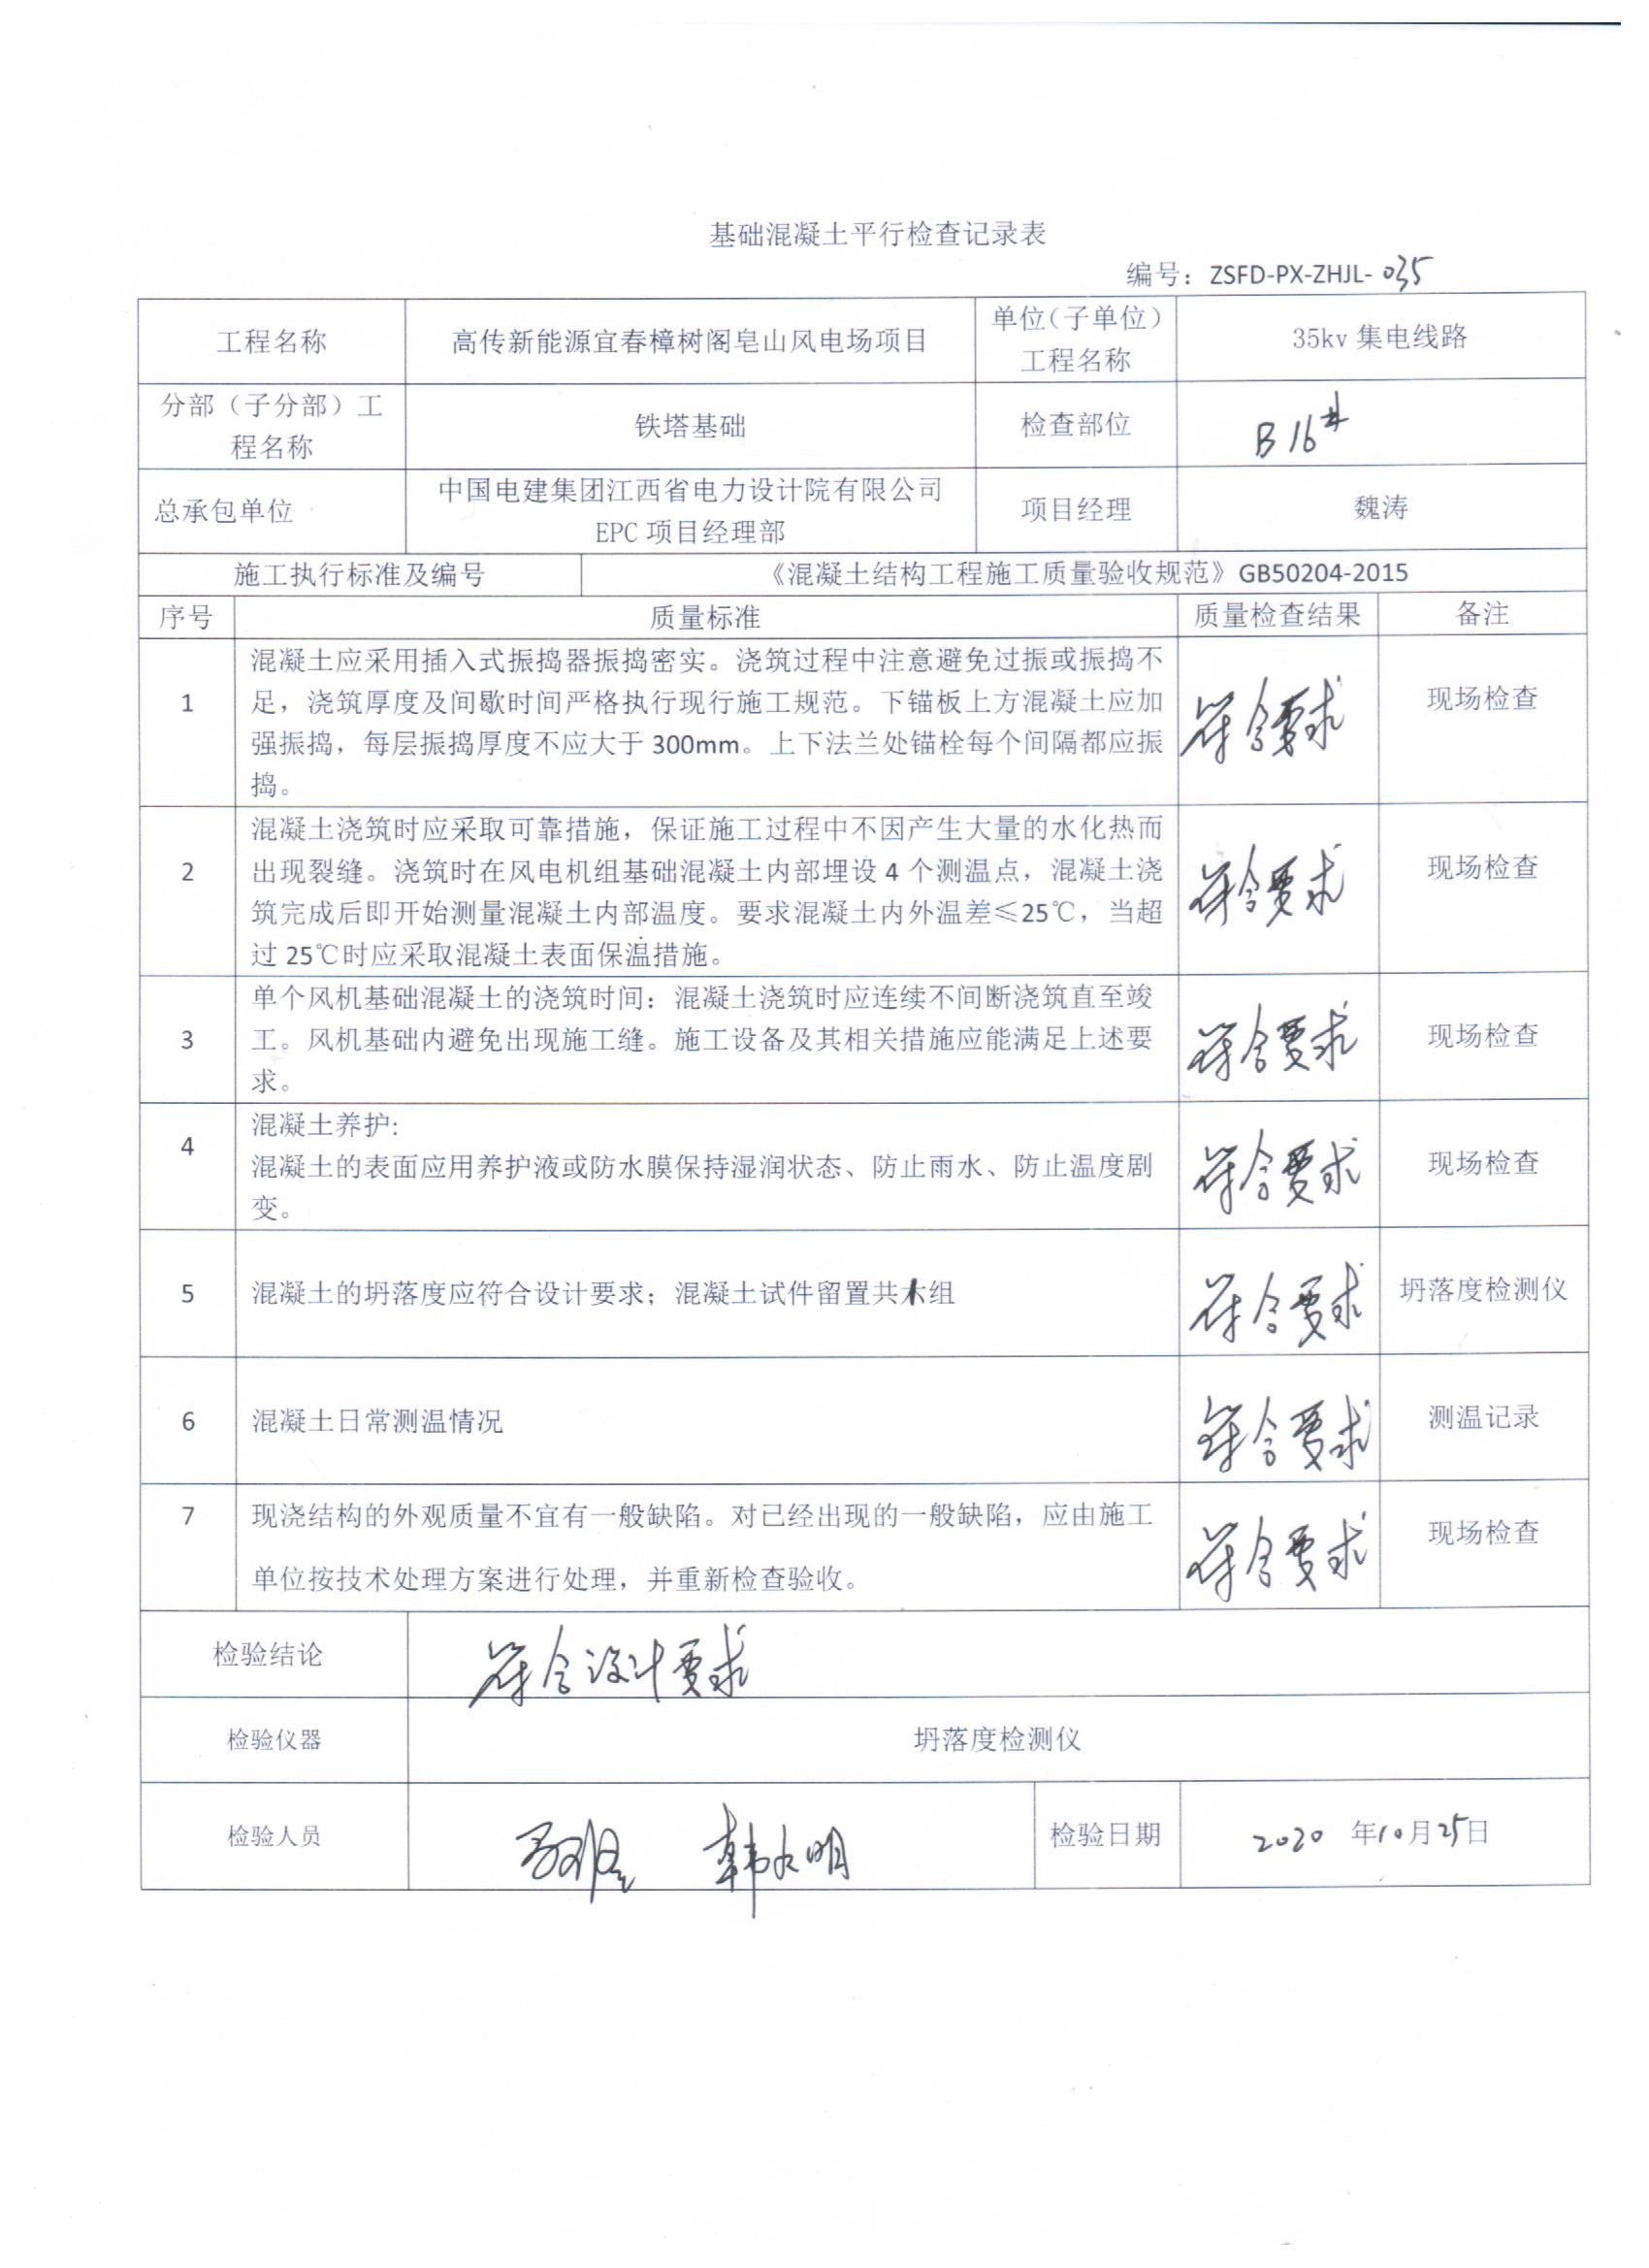 基础混凝土平行检查记录表
编号：ZSFD-PX-ZHJL-035
工程名称
高传新能源宜春樟树阁皂山风电场项目
单位（子单位）
工程名称
35kv 集电线路
分部（子分部）工
程名称
铁塔基础
检查部位
B16#
总承包单位
中国电建集团江西省电力设计院有限公司
EPC 项目经理部
项目经理
魏涛
施工执行标准及编号
《混凝土结构工程施工质量验收规范》GB50204-2015
序号
质量标准
质量检查结果
备注
1
混凝土应采用插入式振捣器振捣密实。浇筑过程中注意避免过振或振捣不
足，浇筑厚度及间歇时间严格执行现行施工规范。下锚板上方混凝土应加
强振捣，每层振捣厚度不应大于 300mm。上下法兰处锚栓每个间隔都应振
捣。
符合要求
现场检查
2
混凝土浇筑时应采取可靠措施，保证施工过程中不因产生大量的水化热而
出现裂缝。浇筑时在风电机组基础混凝土内部埋设 4 个测温点，混凝土浇
筑完成后即开始测量混凝土内部温度。要求混凝土内外温差≤25℃，当超
过 25℃时应采取混凝土表面保温措施。
符合要求
现场检查
3
单个风机基础混凝土的浇筑时间：混凝土浇筑时应连续不间断浇筑直至竣
工。风机基础内避免出现施工缝。施工设备及其相关措施应能满足上述要
求。
符合要求
现场检查
4
混凝土养护:
混凝土的表面应用养护液或防水膜保持湿润状态、防止雨水、防止温度剧
变。
符合要求
现场检查
5
混凝土的坍落度应符合设计要求；混凝土试件留置共 组
符合要求
坍落度检测仪
6
混凝土日常测温情况
符合要求
测温记录
7
现浇结构的外观质量不宜有一般缺陷。对已经出现的一般缺陷，应由施工
单位按技术处理方案进行处理，并重新检查验收。
符合要求
现场检查
检验结论
符合设计要求
检验仪器
坍落度检测仪
检验人员
检验日期
2020 年10月25日